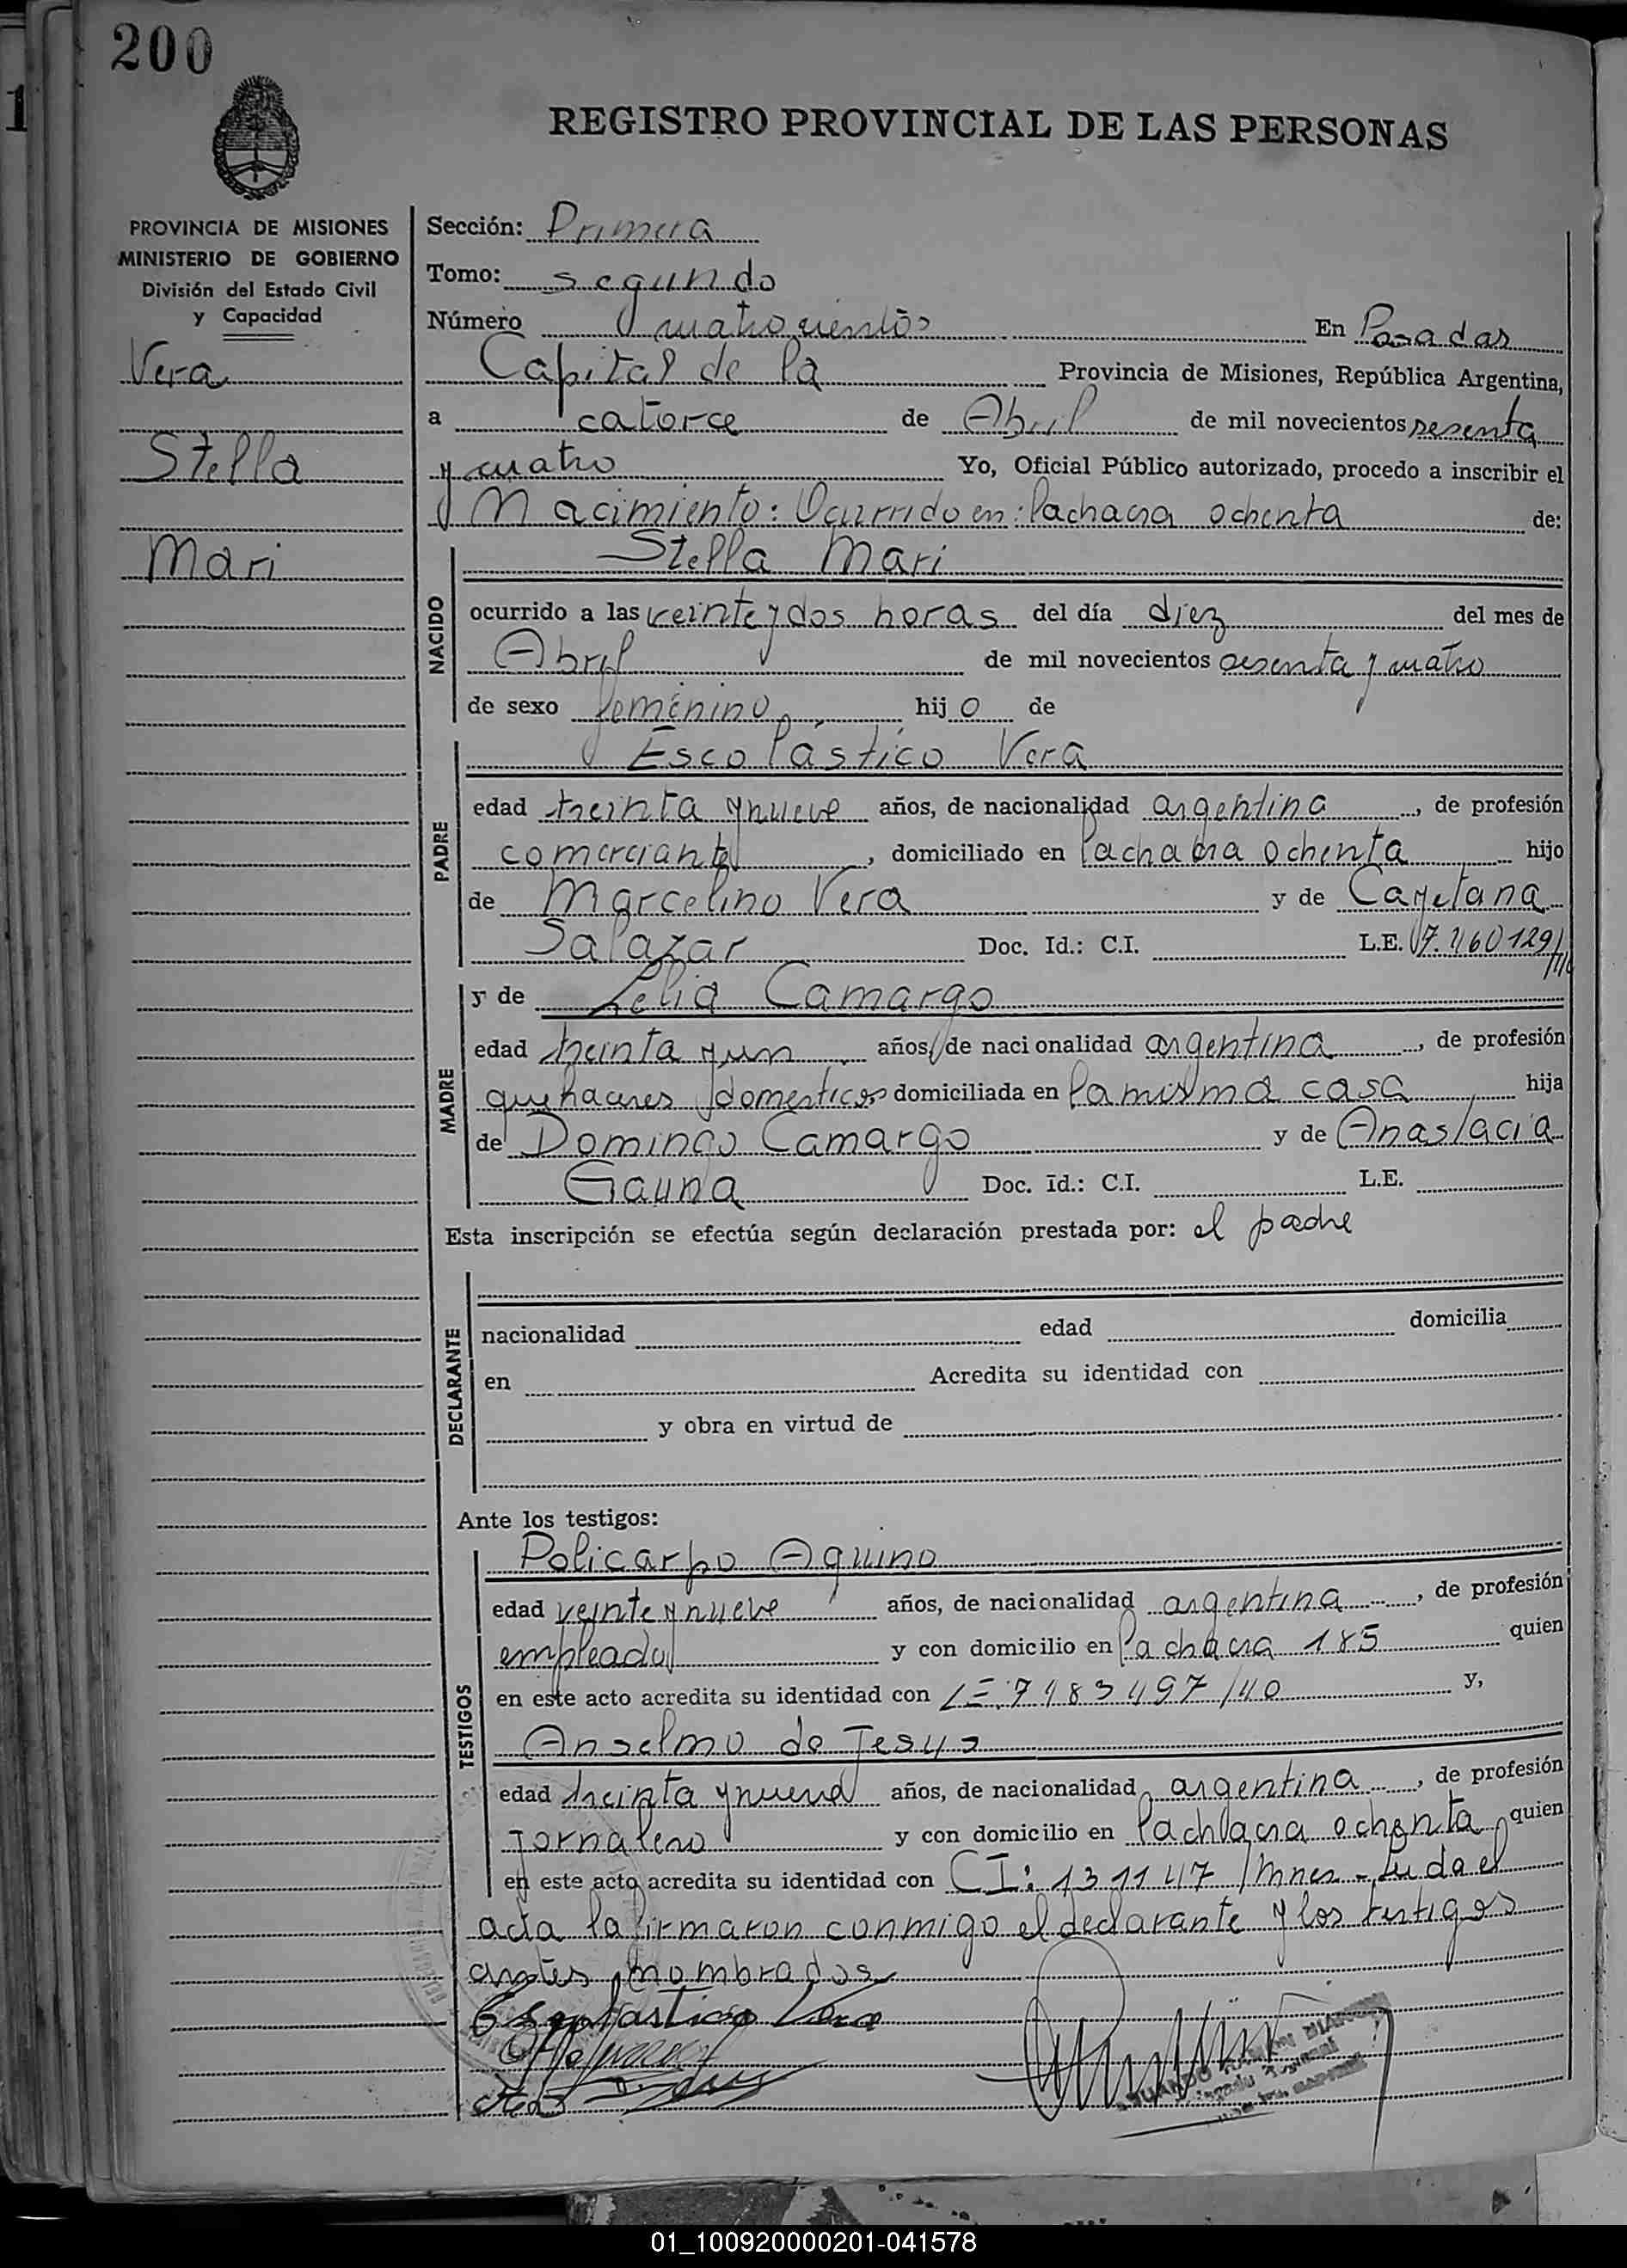 200
REGISTRO PROVINCIAL DE LAS PERSONAS
PROVINCIA DE MISIONES
MINISTERIO DE GOBIERNO
División del Estado Civil
y Capacidad
Vera
Stella
Mari
Sección: Primera
Tomo: segundo
Número cuatrocientos En Posadas
Capital de la Provincia de Misiones, República Argentina,
a catorce de Abril de mil novecientos sesenta
y cuatro Yo, Oficial Público autorizado, procedo a inscribir el
Nacimiento: Ocurrido en: la chacra ochenta de:
NACIDO
Stella Mari
ocurrido a las veinte y dos horas del día diez del mes de
Abril de mil novecientos sesenta y cuatro
de sexo femenino hijo de
PADRE
Escolástico Vera
edad treinta y nueve años, de nacionalidad argentina, de profesión
comerciante, domiciliado en la chacra ochenta hijo
de Marcelino Vera y de Cayetana
Salazar Doc. Id.: C.I. L.E.
MADRE
y de Lelia Camargo
edad treinta y un años, de nacionalidad argentina, de profesión
quehaceres domesticos domiciliada en la misma casa hija
de Domingo Camargo y de Anastacia
Gauna Doc. Id.: C.I. L.E.
Esta inscripción se efectúa según declaración prestada por: el padre
DECLARANTE
nacionalidad edad domicilia
en Acredita su identidad con
y obra en virtud de
Ante los testigos:
TESTIGOS
Policarpo Aquino
edad veinte y nueve años, de nacionalidad argentina, de profesión
empleado y con domicilio en la chacra 185 quien
en este acto acredita su identidad con LE. 7483497/40 y,
Anselmo de Jesus
edad treinta y nueve años, de nacionalidad argentina, de profesión
Jornalero y con domicilio en la chacra ochenta quien
en este acto acredita su identidad con CI: 131147/Mnes - Leida el
acta la firmaron conmigo el declarante y los testigos
antes nombrados
Escolastico Vera
01_100920000201-041578